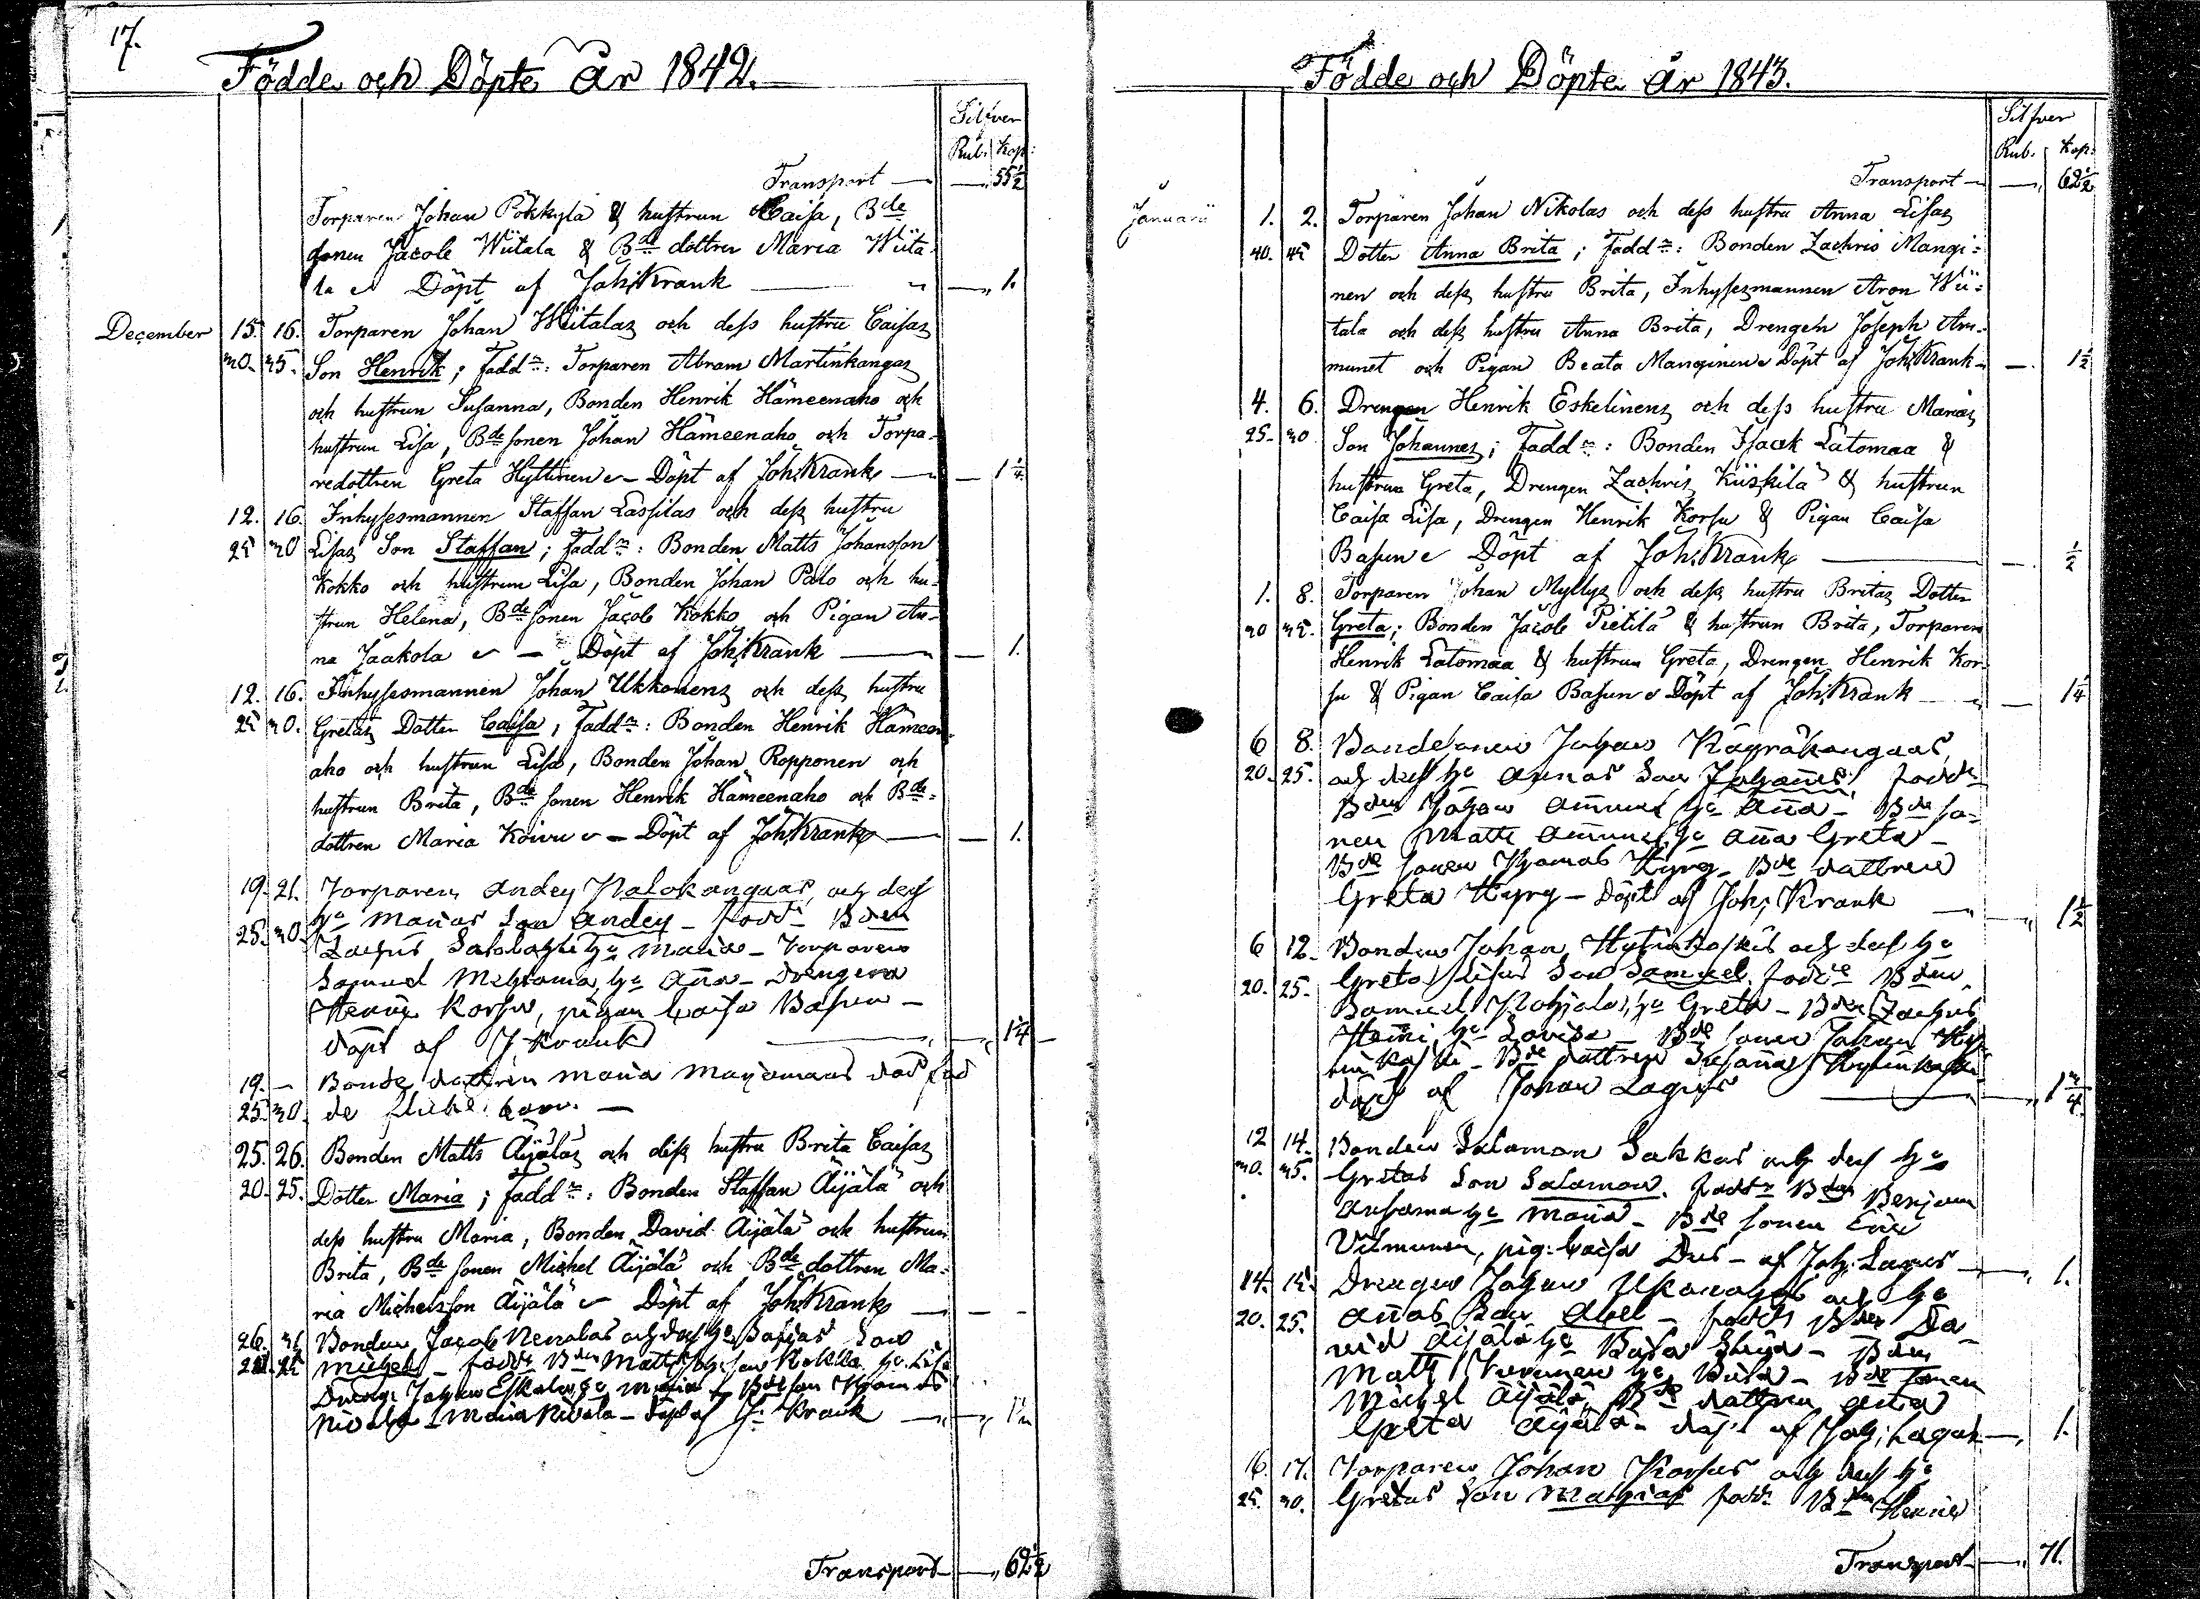 17.
Födde och Döpte År 1842.
Silfver
Rub. Kop:
Transport — — 55 1/2
Torparen Johan Pökkylä & hustrun Caisa, Bde
sonen Jacob Wiitala & Bde dottren Maria Wiita-
la Döpt af Joh: Krank — 1.
December 15. 16. Torparen Johan Wiitalas och dess hustru Caisas
30. 35. Son Henrik; Fadd: Torparen Abram Martinkangas
och hustrun Susanna, Bonden Henrik Hämeenaho och
hustrun Lisa, Bde sonen Johan Hämeenaho och Torpa-
redottren Greta Hyttinen — Döpt af Joh: Krank —
12. 16. Inhysesmannen Staffan Lassilas och dess hustru
25 30 Lisas Son Staffan; Fadd: Bonden Matts Johansson
Kokko och hustrun Lisa, Bonden Johan Palo och hu-
strun Helena, Bde sonen Jacob Kokko och Pigan An-
na Jaakola — Döpt af Joh: Krank — 1.
12. 16. Inhysesmannen Johan Ukkonens och dess hustru
25 30. Gretas Dotter Caisa; Fadd: Bonden Henrik Hämeen-
aho och hustrun Lisa, Bonden Johan Ropponen och
hustrun Brita, Bde sonen Henrik Hämeenaho och Bde-
dottren Maria Koivu — Döpt af Joh: Krank — 1.
19. 21. Torparen Andey Palokangaas, och dess
25. 30. hu Marias Son Andey — Fadd: Bden
hu Maria — Torparen
Samuel hu Anna — Drengen
Henric Korsu, pigan Caisa Basun —
Döpt af J. Krank — 1 1/4
19. — Bonde dottren Maria
25. 30 de
25. 26. Bonden Matts Äijälas och dess hustru Brita Caisas
20. 25. Dotter Maria; Fadd: Bonden Staffan Äijälä och
dess hustru Maria, Bonden David Äijälä och hustrun
Brita, Bde sonen Michel Äijälä och Bde dottren Ma-
ria Michelsson Äijälä — Döpt af Joh: Krank — — -
26. Bonden Jacob och dess hu Son
Michel — Fadd: Bden Matts
Johan hu Maria — Bde son Thomas
Nivala — Maria Nivala — Döpt af J: Krank —
Transport — 62 1/2
Födde och Döpte År 1843.
Silfver
Rub. Kop:
Transport — — 62 1/2
Januarii 1. 2. Torparen Johan Nikolas och dess hustru Anna Lisas
40. 45 Dotter Anna Brita; Fadd: Bonden Zachris Mangi-
nen och dess hustru Brita, Inhysesmannen Aron Wii-
tala och dess hustru Anna Brita, Drengen Joseph Am-
munet och Pigan Beata Manginen Döpt af Joh: Krank — 1 1/2
4. 6. Drengen Henrik Eskelinens och dess hustru Marias
25. 30 Son Johannes; Fadd: Bonden Isaak Latomaa &
hustrun Greta, Drengen Zachris Kiiskilä & hustrun
Caisa Lisa, Drengen Henrik Korsu & Pigan Caisa
Basun Döpt af Joh: Krank — 1/2
1. 8. Torparen Johan Myllys och dess hustru Britas Dotter
30 35. Greta; Bonden Jacob Pietilä & hustrun Brita, Torparen
Henrik Latomaa & hustrun Greta, Drengen Henrik Kor-
su & Pigan Caisa Basun Döpt af Joh: Krank — 1 1/4
6 8. Bondesonen Johan Kägräkangaas,
20. 25. och dess hu Annas Son Johannes; Fadd:
Bden Johan Ammunet hu Anna — Bde so-
nen Matts Ammunet, hu Anna Greta —
Bde sonen Thomas Hyry — Bde dottren
Greta Hyry — Döpt af Joh: Krank — 1 1/2
6 12. Bonden Johan Hytinkoskis och dess hu
20. 25. Greta Lisas Son Samuel Fadd: Bden
Samuel Pohjala, hu Greta — Bden Zachris
hu Lovisa — Bde sonen Johan Hy-
tinkoski — Bde dottren Susanna Hytinkoski
döpt af Johan Lagus — 1 3/4
12 14. Bonden Salomon Sakkos och dess hu
30. 35. Gretas Son Salomon. Fadd: Bden Benjam
hu Maria — Bde sonen Eric
Vilmunen, pig: Caisa — af Joh: Lagus — 1.
14. 15. Drengen Johan och hu
20. 25. Annas Son Abel — Fadd: Bden Da-
vid Äijälä hu — Bden
Matts hu — Bde sonen
Michel Äijälä, Bde dottren Anna
Greta Äijälä — döpt af Joh: Lagus — 1.
16. 17. Torparen Johan Korsus och dess hu
25. 30. Gretas Son Mathias Fadd: Bden Henric
Transport — 71.